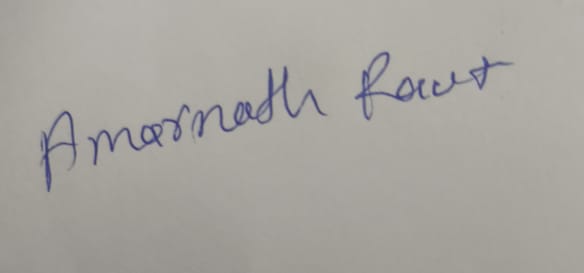 Amarnath Raut